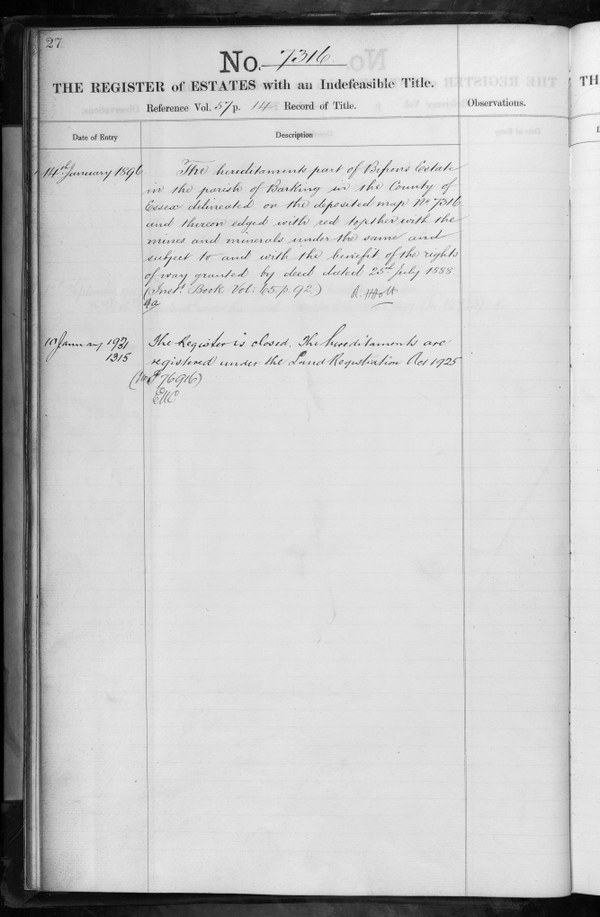 27
No. 7316
THE REGISTER of ESTATES with an Indefeasible Title.
Reference Vol. 57 p. 14 Record of Title.
Observations.
Date of Entry
Description
14th January 1896
The hereditaments part of Bifrons Estate
in the parish of Barking in the County of
Essex delineated on the deposited map No 7316
and thereon edged with red together with the
mines and minerals under the same and
subject to and with the benefit of the rights
of way granted by deed dated 25th July 1888
(Inst. Book Vol: 65 p. 92.)
R. Holt
10 January 1931
1315
The Register is closed. The hereditaments are
registered under the Land Registration Act 1925
(No P76916)